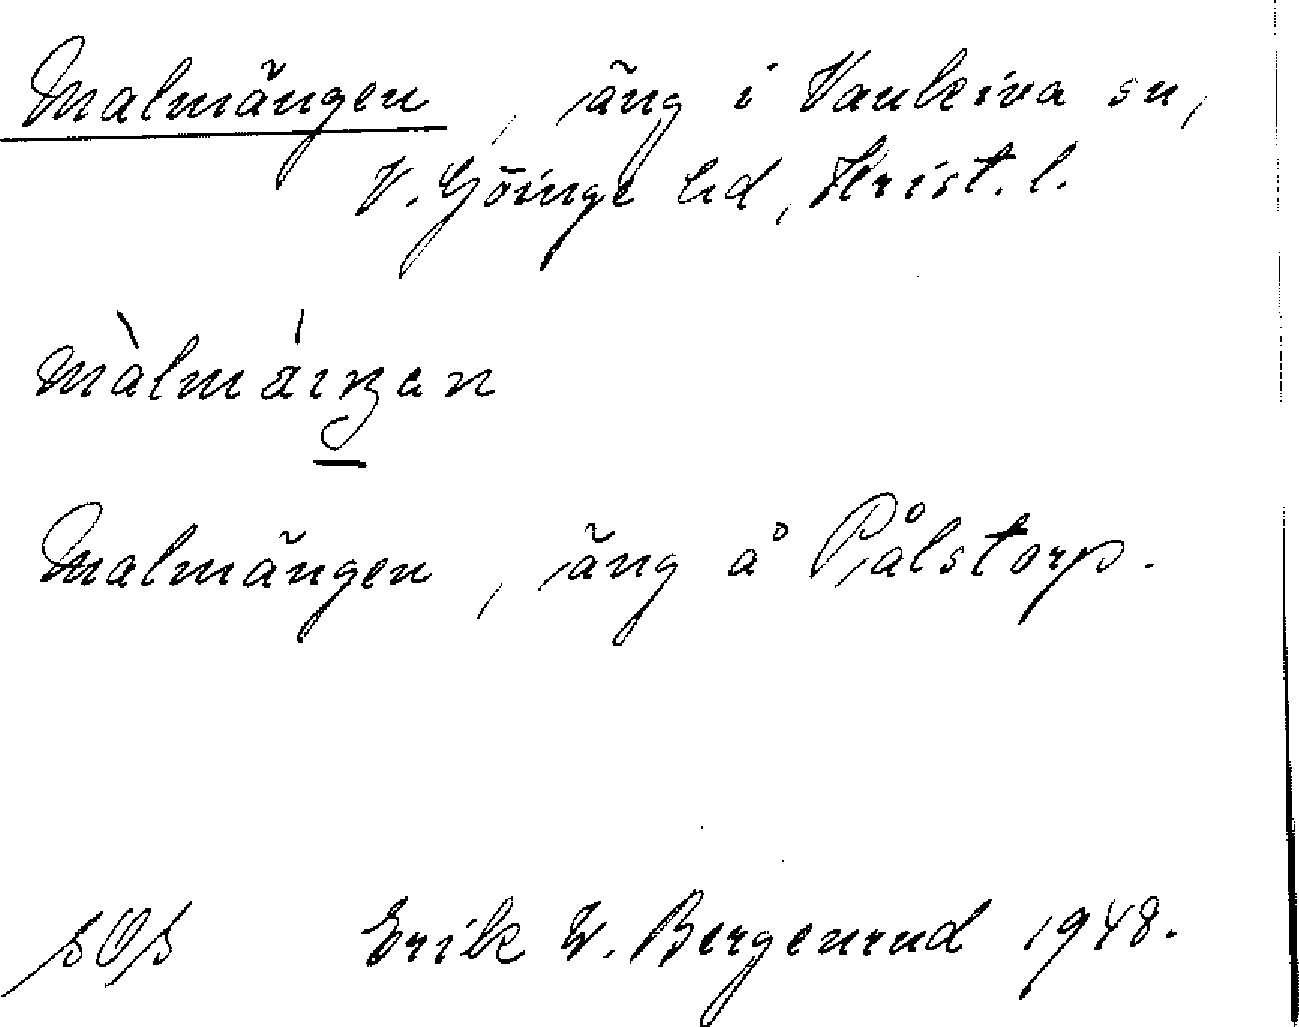 Malmängen, äng i Vankiva sn,
V. Göinge hd, Krist. l.
Malmängen, äng å Pålstorp.
Erik W. Bergenrud 1948.